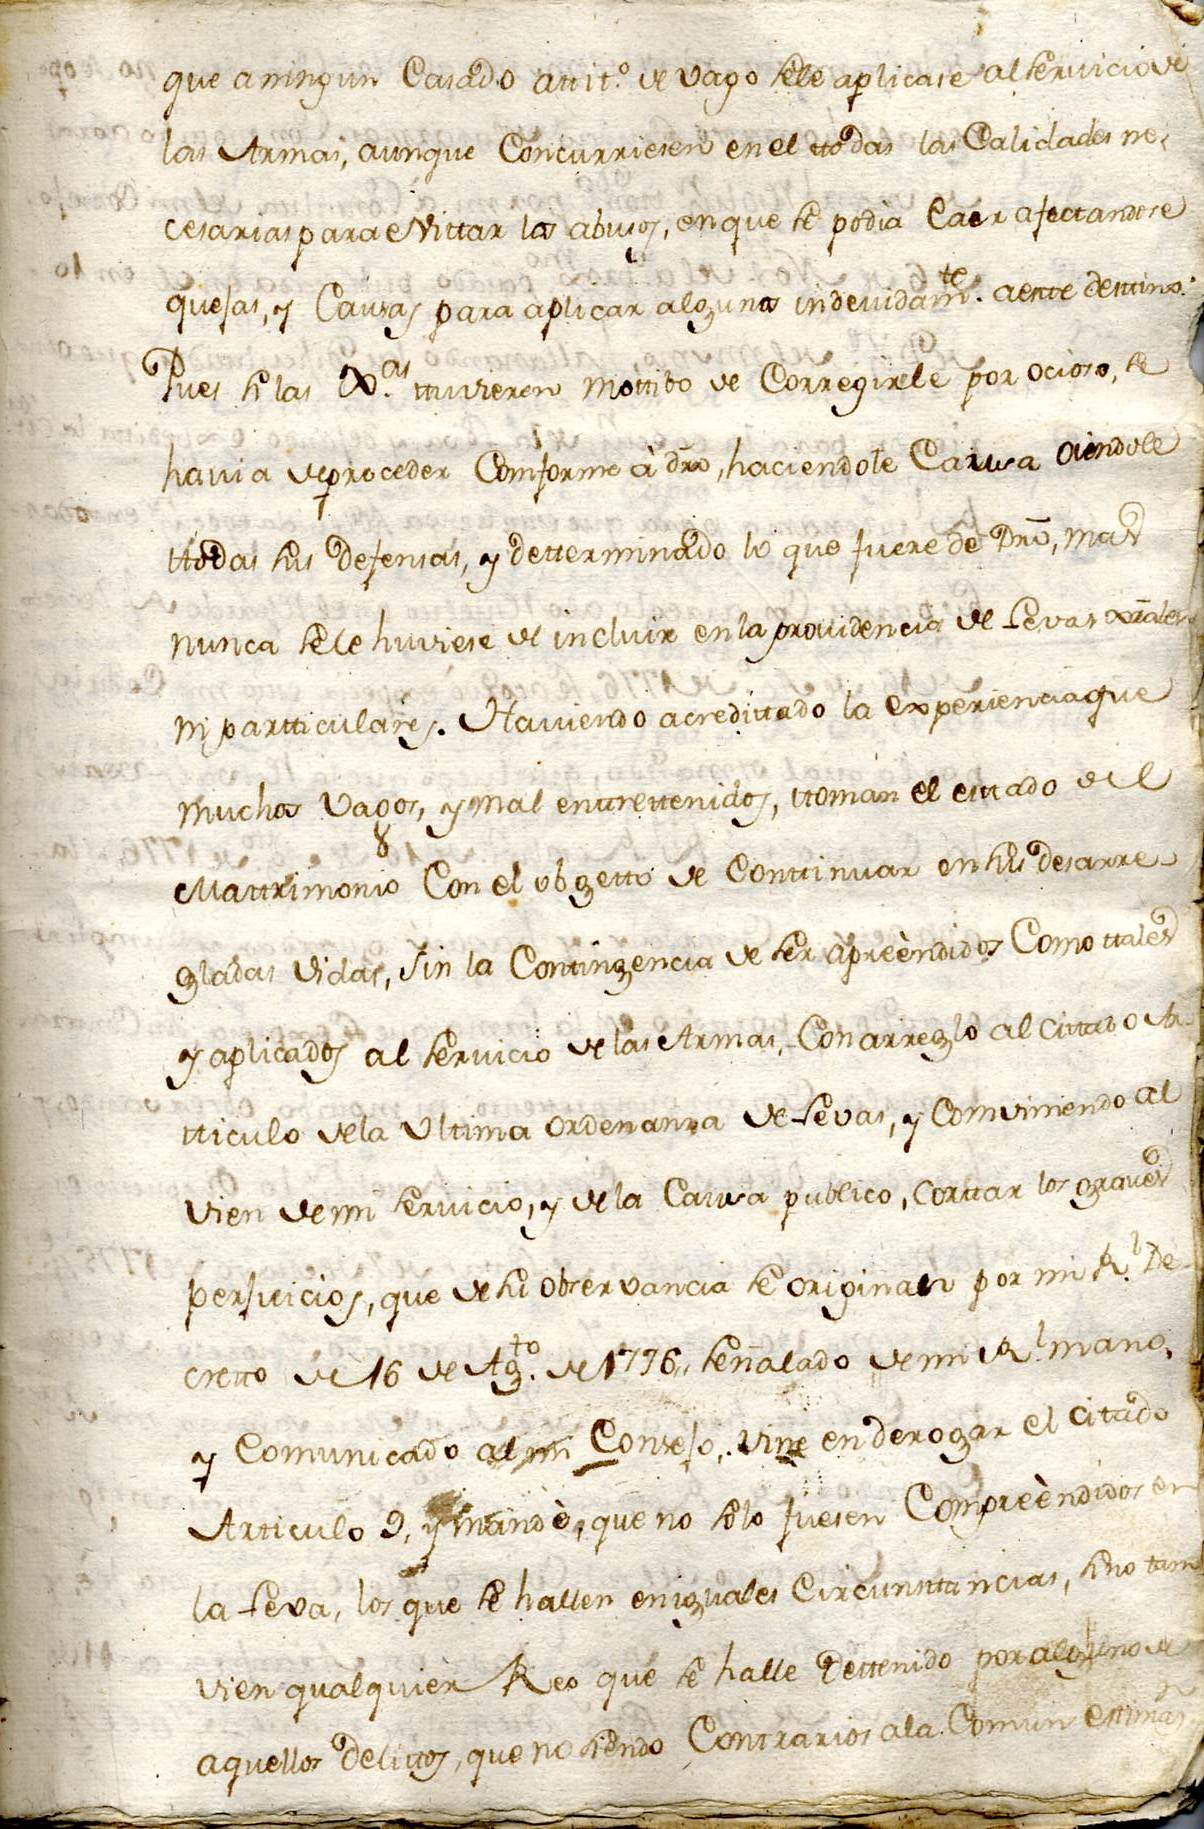 que a ningun Casado a ttit.º de vago sele aplicase al servicio de
las Armas, aunque Concurriesen en el ttodas las Calidades ne-
cesarias para evittar los abusos, en que se podia Caer afectandose
quejas, y Causas para aplicar algunos indevidam.te a este desttino.
Pues si las Xas. ttuvieren mottibo de Corregirle por ocioso, se
havia de proceder Comforme â dro, haciendole Causa oiendole
ttodas sus Defensas, y determinado lo que fuere de Dro, mas
nunca sele huviese de incluir en la providencia de Levas xrales
ni partticulares. Haviendo acredittado la experiencia que
muchos vagos, y mal entrettenidos, ttoman el esttado del
Mattrimonio Con el obgetto de Conttinuar en sus desarre
gladas vidas, sin la Contingencia de ser apreèndidos Como ttales
y aplicados al servicio de las Armas, Con arreglo al Cittado Ar-
tticulo dela Ultima ordenanza de Levas, y Comviniendo al
vien de mi servicio, y de la Causa publico, Corttar los graves
perjuicios, que de su observancia se originan por mi R.l De-
cretto de 16 de Agto. de 1776,, señalado de mi R.l mano,
y Comunicado al mi Consejo,. vine en derogar el citado
Articulo 9, y mandè, que no solo fuesen Compreèndidos en
la Leva, los que se hallen en iguales Circunsttancias, sino tam
vien qualquier Reo que se halle Dettenido por alguno de
aquellos Delittos, que no siendo Contrarios a la Comun estimas.n